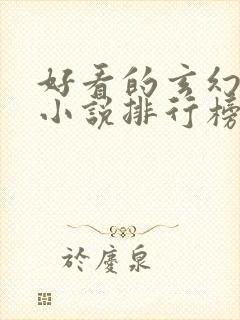 好看的玄幻
小说排行榜
於慶泉